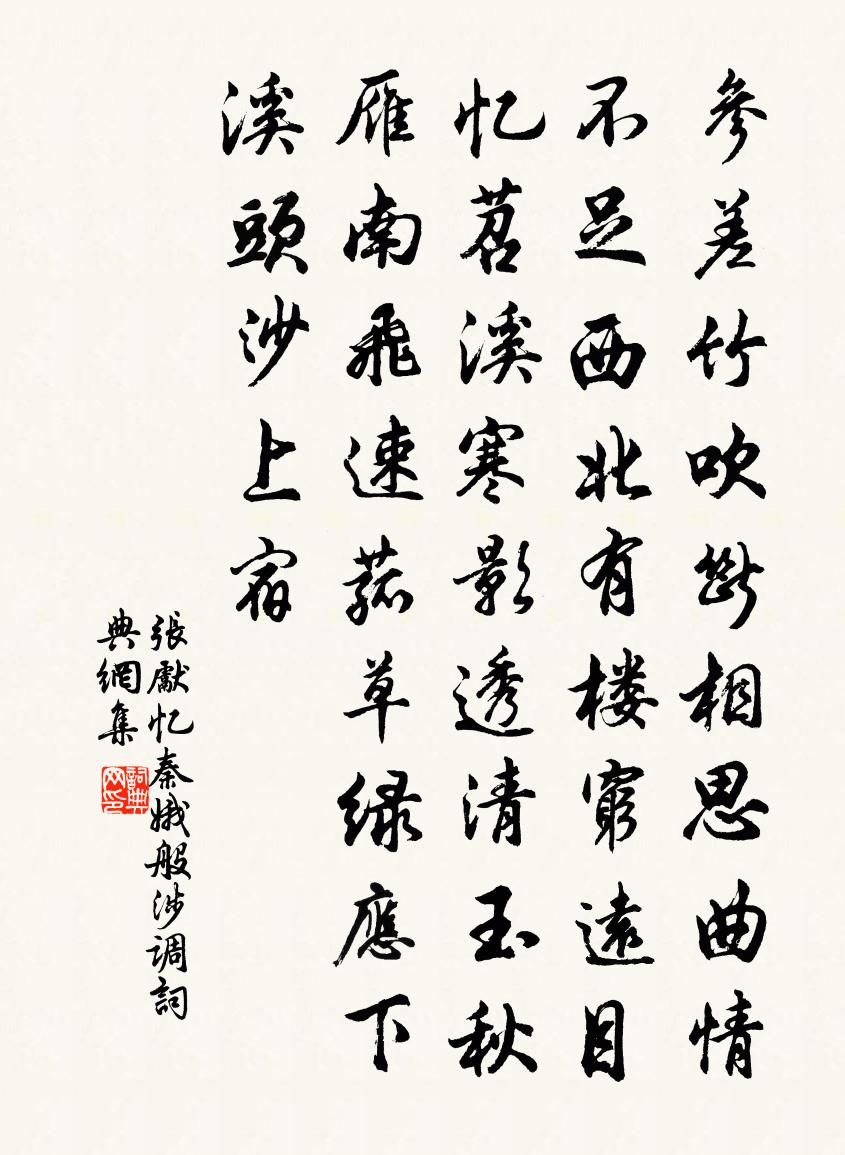 參差竹吹斷相思曲情
不足西北有楼窮遠目
忆苕溪寒影透清玉秋
雁南飛速菰草緑應下
溪頭沙上宿
張獻忆秦娥般涉調詞
典網集
詞典
网印